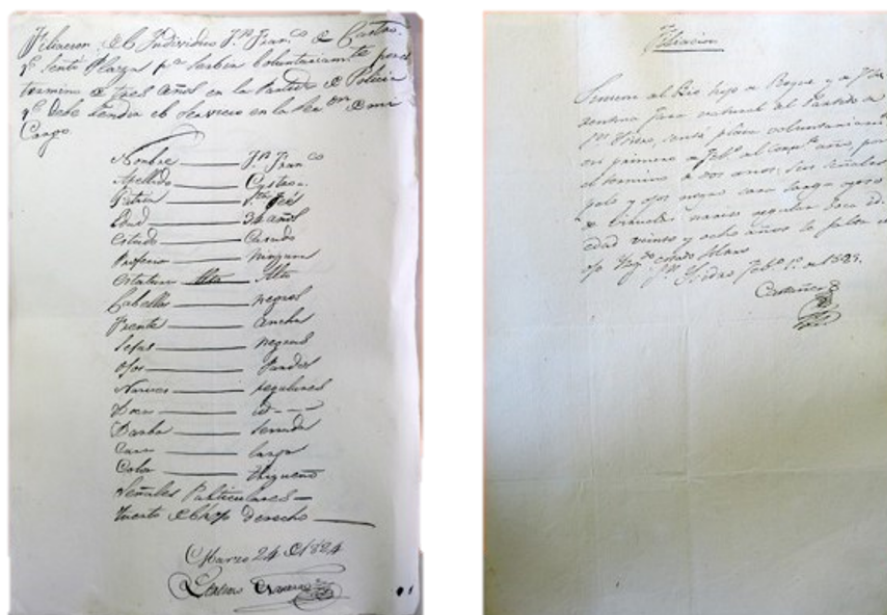 Filiacion del Individuo Jn Franco de Castro.
qe Sentó Plaza pa Serbir Voluntariamte por el
termino de tres años en la Partida de Policia
qe Debe tendra el Servicio en la de mi
Cargo.
Nombre — Jn Franco
Apellido — Castro.
Patria — Sta Fée
Edad — 34 años
Estado — Casado
Profecion — Ninguna
Estatura Alta — Alta
Cabellos — negros
Frente — ancha
Sejas — negras
Ojos — Pardos
Narices — regulares
Boca — id - - -
Barba — serrada
Cara — larga
Color — trigueño
Señales Particulares —
tuerto del ojo derecho —
Marzo 24 de 1824
Filiacion
Simeon del Rio hijo de Roque y de
natural del Partido de
Sn Ysidro, sentó plaza voluntariamte
en primero de Febo del año, por
el termino de dos años, sus señales
pelo y ojos negros cara larga
de viruelas narices regular boca id.
edad veinte y ocho años le falta un
ojo Yzqdo color blanco
Sn Ysidro Febo 1o de 1823.
Castañer